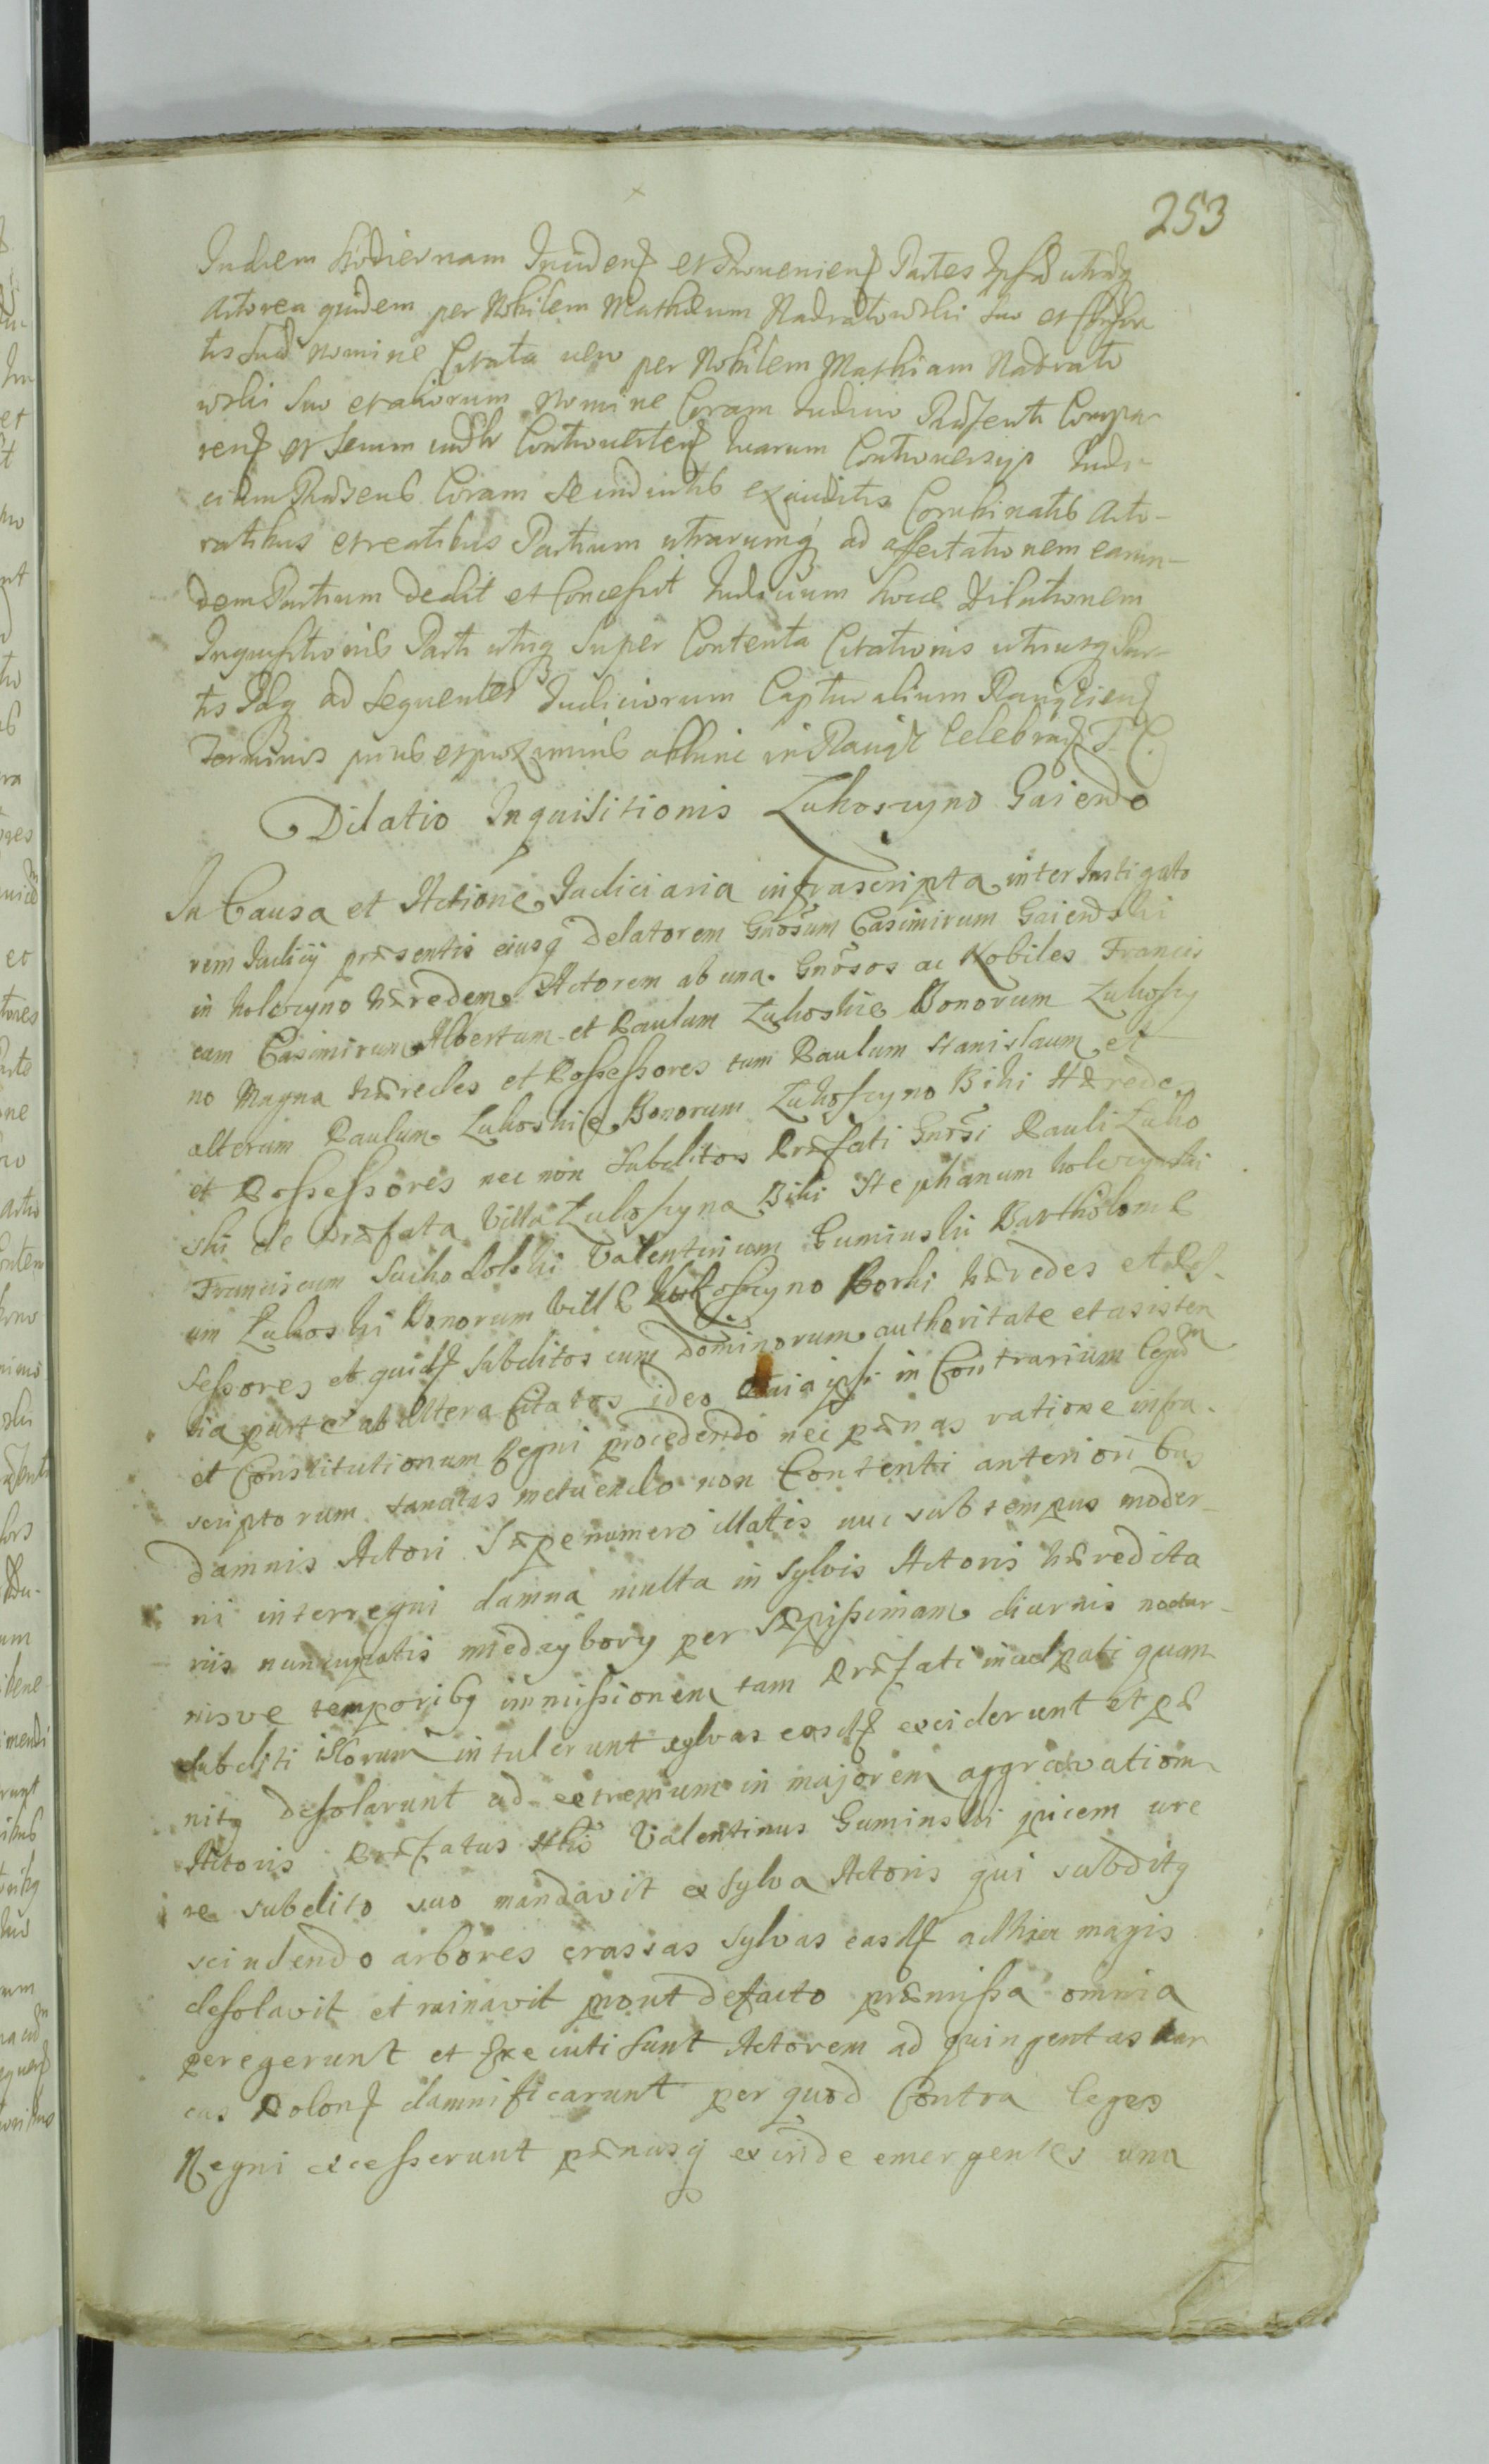 253
Indiem hodiernam Inciden et Provenien Partes Ipsæ utræq
Actorea quidem per Nobilem Mathæum Nadratowski suo et
tis suæ Nomine Citata vero per Nobilem Mathiam Nadrato
wski suo et aliorum Nomine Coram Iudicio Præsenti Compa-
ren et Secum Controverten quarum Controversijs Iudi-
cium Præsens Coram Se exauditis Combinatis Acto-
ratibus et reatibus Partium utrarumq ad affectationem earun-
dem Partium dedit et Concessit Iudicium hocce Dilationem
Inquisitionis Parti utriq Super Contenta Citationis utriusq Par-
tis Idq ad sequentes Iudiciorum Capturalium
Terminos et proximius abhinc in Celebran T. C.
Dilatio Inquisitionis Zukoscyno Gaiendo
In Causa et Actione Iudiciaria infrascripta inter Instigato
rem Iudicij præsentis eiusq Delatorem Gnosum Casimirum Gaiendski
in holeczyno hæredem Actorem ab una. Gnosos ac Nobiles Francis
cum Casimirum Albertum et Paulum Zukoskie Bonorum Zukoscy
no Magna hæredes et Possessores tum Paulum Stanislaum et
alterum Paulum Zukoskie Bonorum Zukoscyno Biki Hærede
et Possessores nec non subditos Præfati Gnosi Pauli Zuko
ski de Præfata Villa Zukoscyno Biki Stephanum holeczynski
Franciscum Suchodolski Valentinum Guminski Bartholomæ
um Zukoski Bonorum Villæ Zukoscyno Borki hæredes et Pos-
sessores et quid subditos cum Dominorum authoritate et asisten
tia parte ab altera Citatos ideo quia ipsi in Contrarium legum
et Constitutionum Regni procedendo nec pænas ratione infra-
scriptorum sancitas metuendo non Contenti anterioribus
damnis Actori Sæpenumero illatis nunc sub tempus moder-
ni interregni damna multa in Sylvis Actoris hæredita
riis nuncupatis miedzybory per Sæpissimam diurnis noctur-
nisve temporibq immissionem tam Præfati inculpati quam
subditi illorum intulerunt sylvas easd exciderunt et pæ
nitq desolarunt ad extremum in majorem aggravationem
Actoris Præfatus Valentinus Guminski picem ure
re subdito suo mandavit ex sylva Actoris qui subditq
scindendo arbores crassas sylvas easd adhuc magis
desolavit et ruinavit prout de facto præmissa omnia
peregerunt et Executi sunt Actorem ad quingentas mar
cas Polon damnificarunt per quod Contra leges
Regni excesserunt pænasq exinde emergentes una